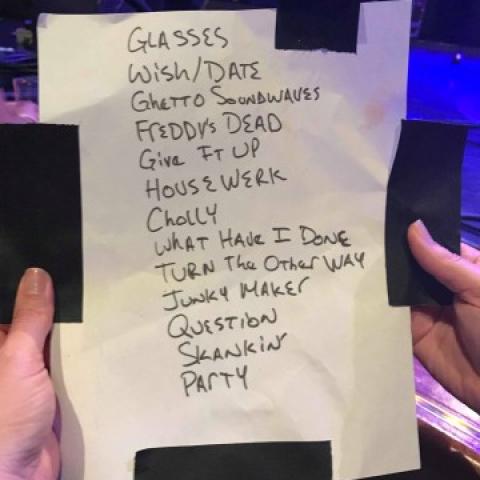 GLASSES
WISH/DATE
GHETTO SOUNDWAVES
FREDDY'S DEAD
Give IT UP
HOUSEWERK
CHOLLY
WHAT HAVE I DONE
TURN The OTHer WAY
JUNKY MAKER
QUESTION
SKANKIN'
PARTY